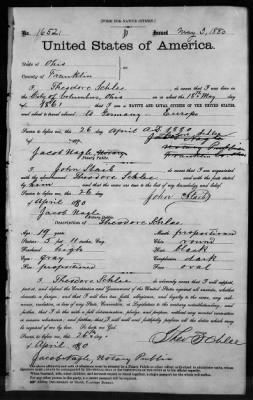 [FORM FOR NATIVE CITIZEN.]
No. 1652 Issued May 3, 1880
United States of America.
State of Ohio
County of Franklin
I, Theodore Schlee, do swear that I was born in
the City of Columbus, Ohio, on the 18th May day
of 1861; that I am a NATIVE AND LOYAL CITIZEN OF THE UNITED STATES,
and about to travel abroad to Germany Europe
Sworn to before me, this 26 day
April A.D. 1880
Jacob Nagle Notary
Notary Public
I, John Stark do swear that I am acquainted
with the Theodore Schlee and with the facts stated
by him and that the same are true to the best of my knowledge and belief.
Sworn to before me, this 26 day
John Stark
of April 1880
Jacob Nagle
Notary Public
Description of Theodore Schlee
Age 19 years Mouth proportioned
Stature 5 feet 11 inches, Eng. Chin round
Forehead high Hair black
Eyes Gray Complexion dark
Nose proportioned Face oval
I, Theodore Schlee do solemnly swear that I will
support, protect, and defend the Constitution and Government of the United States against all enemies, whether
domestic or foreign; and that I will bear true faith, allegiance, and loyalty to the same, any ordi-
nance, resolution, or law of any State, Convention, or Legislature to the contrary notwithstanding; and
further, that I do this with a full determination, pledge, and purpose, without any mental reservation
or evasion whatsoever; and further, that I will well and faithfully perform all the duties which may
be required of me by law: So help me God.
Sworn to before me, this 26th day
of April 1880
Theo Schlee
Jacob Nagle, Notary Public